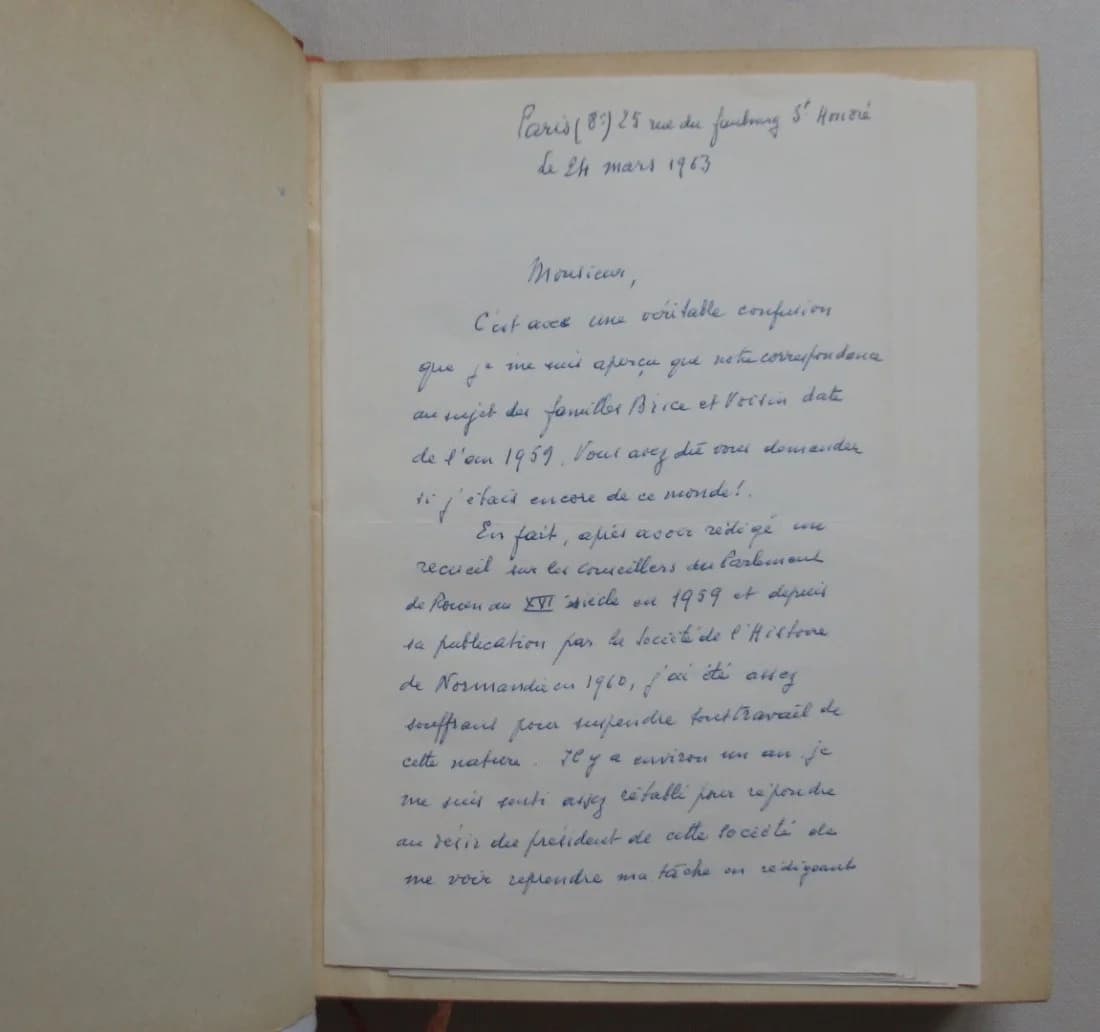 Paris (8e) 25 rue du faubourg St Honoré
le 24 mars 1963
Monsieur,
C'est avec une véritable confusion
que je me suis aperçu que notre correspondance
au sujet des familles Brice et Voisin date
de l'an 1959. Vous avez dû vous demander
si j'étais encore de ce monde!.
En fait, après avoir rédigé un
recueil sur les conseillers du Parlement
de Rouen au XVIe siècle en 1959 et depuis
sa publication par la Société de l'Histoire
de Normandie en 1960, j'ai été assez
souffrant pour suspendre tout travail de
cette nature. Il y a environ un an je
me suis senti assez rétabli pour répondre
au désir du président de cette Société de
me voir reprendre ma tâche en rédigeant